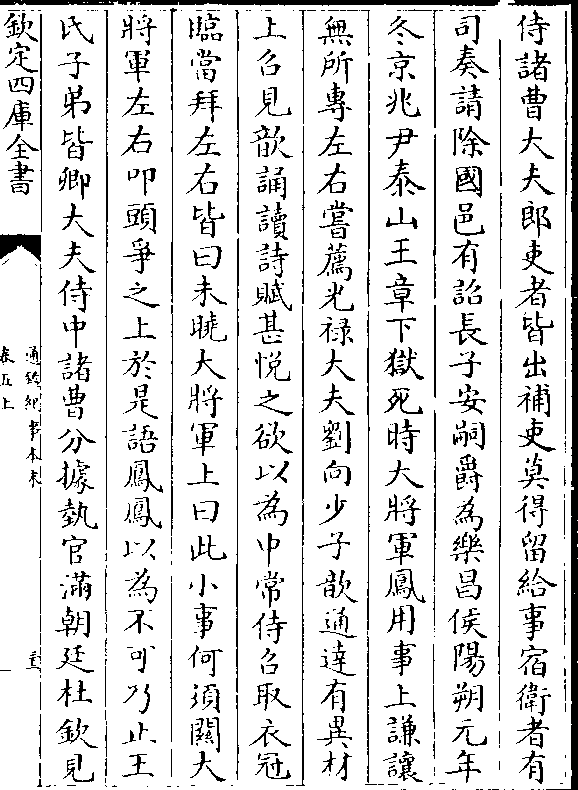 侍諸曹大夫郎吏者皆出補吏莫得留給事宿衛者有
司奏請除國邑有詔長子安嗣爵為樂昌侯陽朔元年
冬京兆尹泰山王章下獄死時大將軍鳳用事上謙讓
無所專左右嘗薦光禄大夫劉向少子歆通達有異材
上召見歆誦讀詩賦甚悅之欲以為中常侍召取衣冠
臨當拜左右皆曰未曉大將軍上曰此小事何須關大
將軍左右叩頭爭之上於是語鳳鳳以為不可乃止王
氏子弟皆卿大夫侍中諸曹分據埶官滿朝廷杜欽見
欽定四庫全書
通鑑紀事本末
卷五上